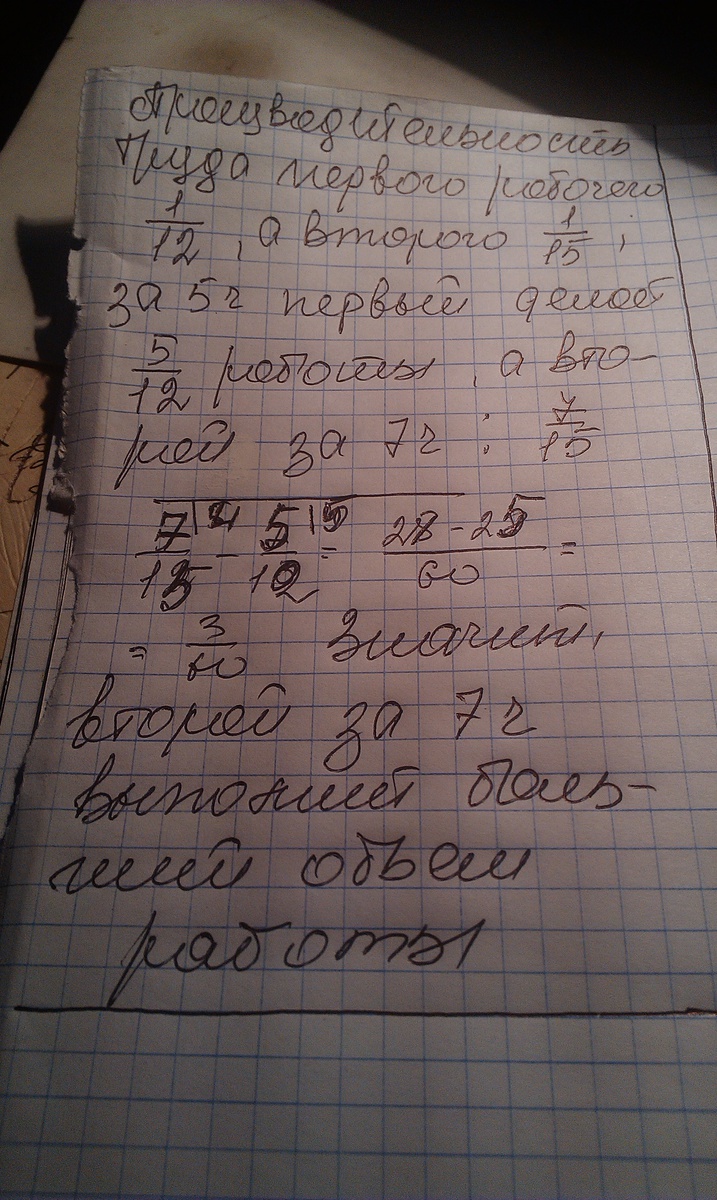 Производительность
труда первого рабочего
1/12, а второго 1/15;
за 5ч первый делает
5/12 работы, а вто-
рой за 7ч : 7/15
7/15 |4 - 5/12 |5 = 28-25/60 =
= 3/60 Значит,
второй за 7ч
выполнит боль-
ший объем
работы